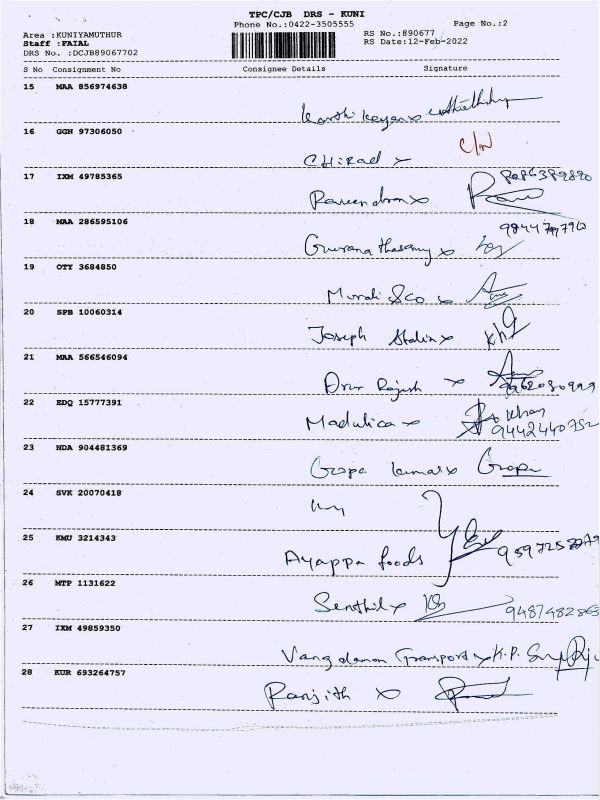 TPC/CJB DRS - KUNI
Phone No.:0422-3505555
Page No.:2
Area :KUNIYAMUTHUR
Staff :FAIAL
DRS No. :DCJB89067702
RS No.:890677
RS Date:12-Feb-2022
S No Consignment No Consignee Details Signature
15 MAA 856974638
Karthikeyan x
16 GGN 97306050 C/N
CHirad x
17 IXM 49785365 8086389890
Raveendran x
18 MAA 286595106
Gurunathasamy x
19 OTY 3684850
Murali & Co x
20 SPB 10060314
Joseph Stalin x
21 MAA 566546094
Rajesh x
22 EDQ 15777391 Khan
Madulica x 9442440752
23 NDA 904481369
Gropa kumar x Gropa
24 SVK 20070418
25 KMU 3214343
Ayappa foods
26 MTP 1131622
Senthil x
27 IXM 49859350
Transport x K.P.
28 KUR 693264757
Ranjith x